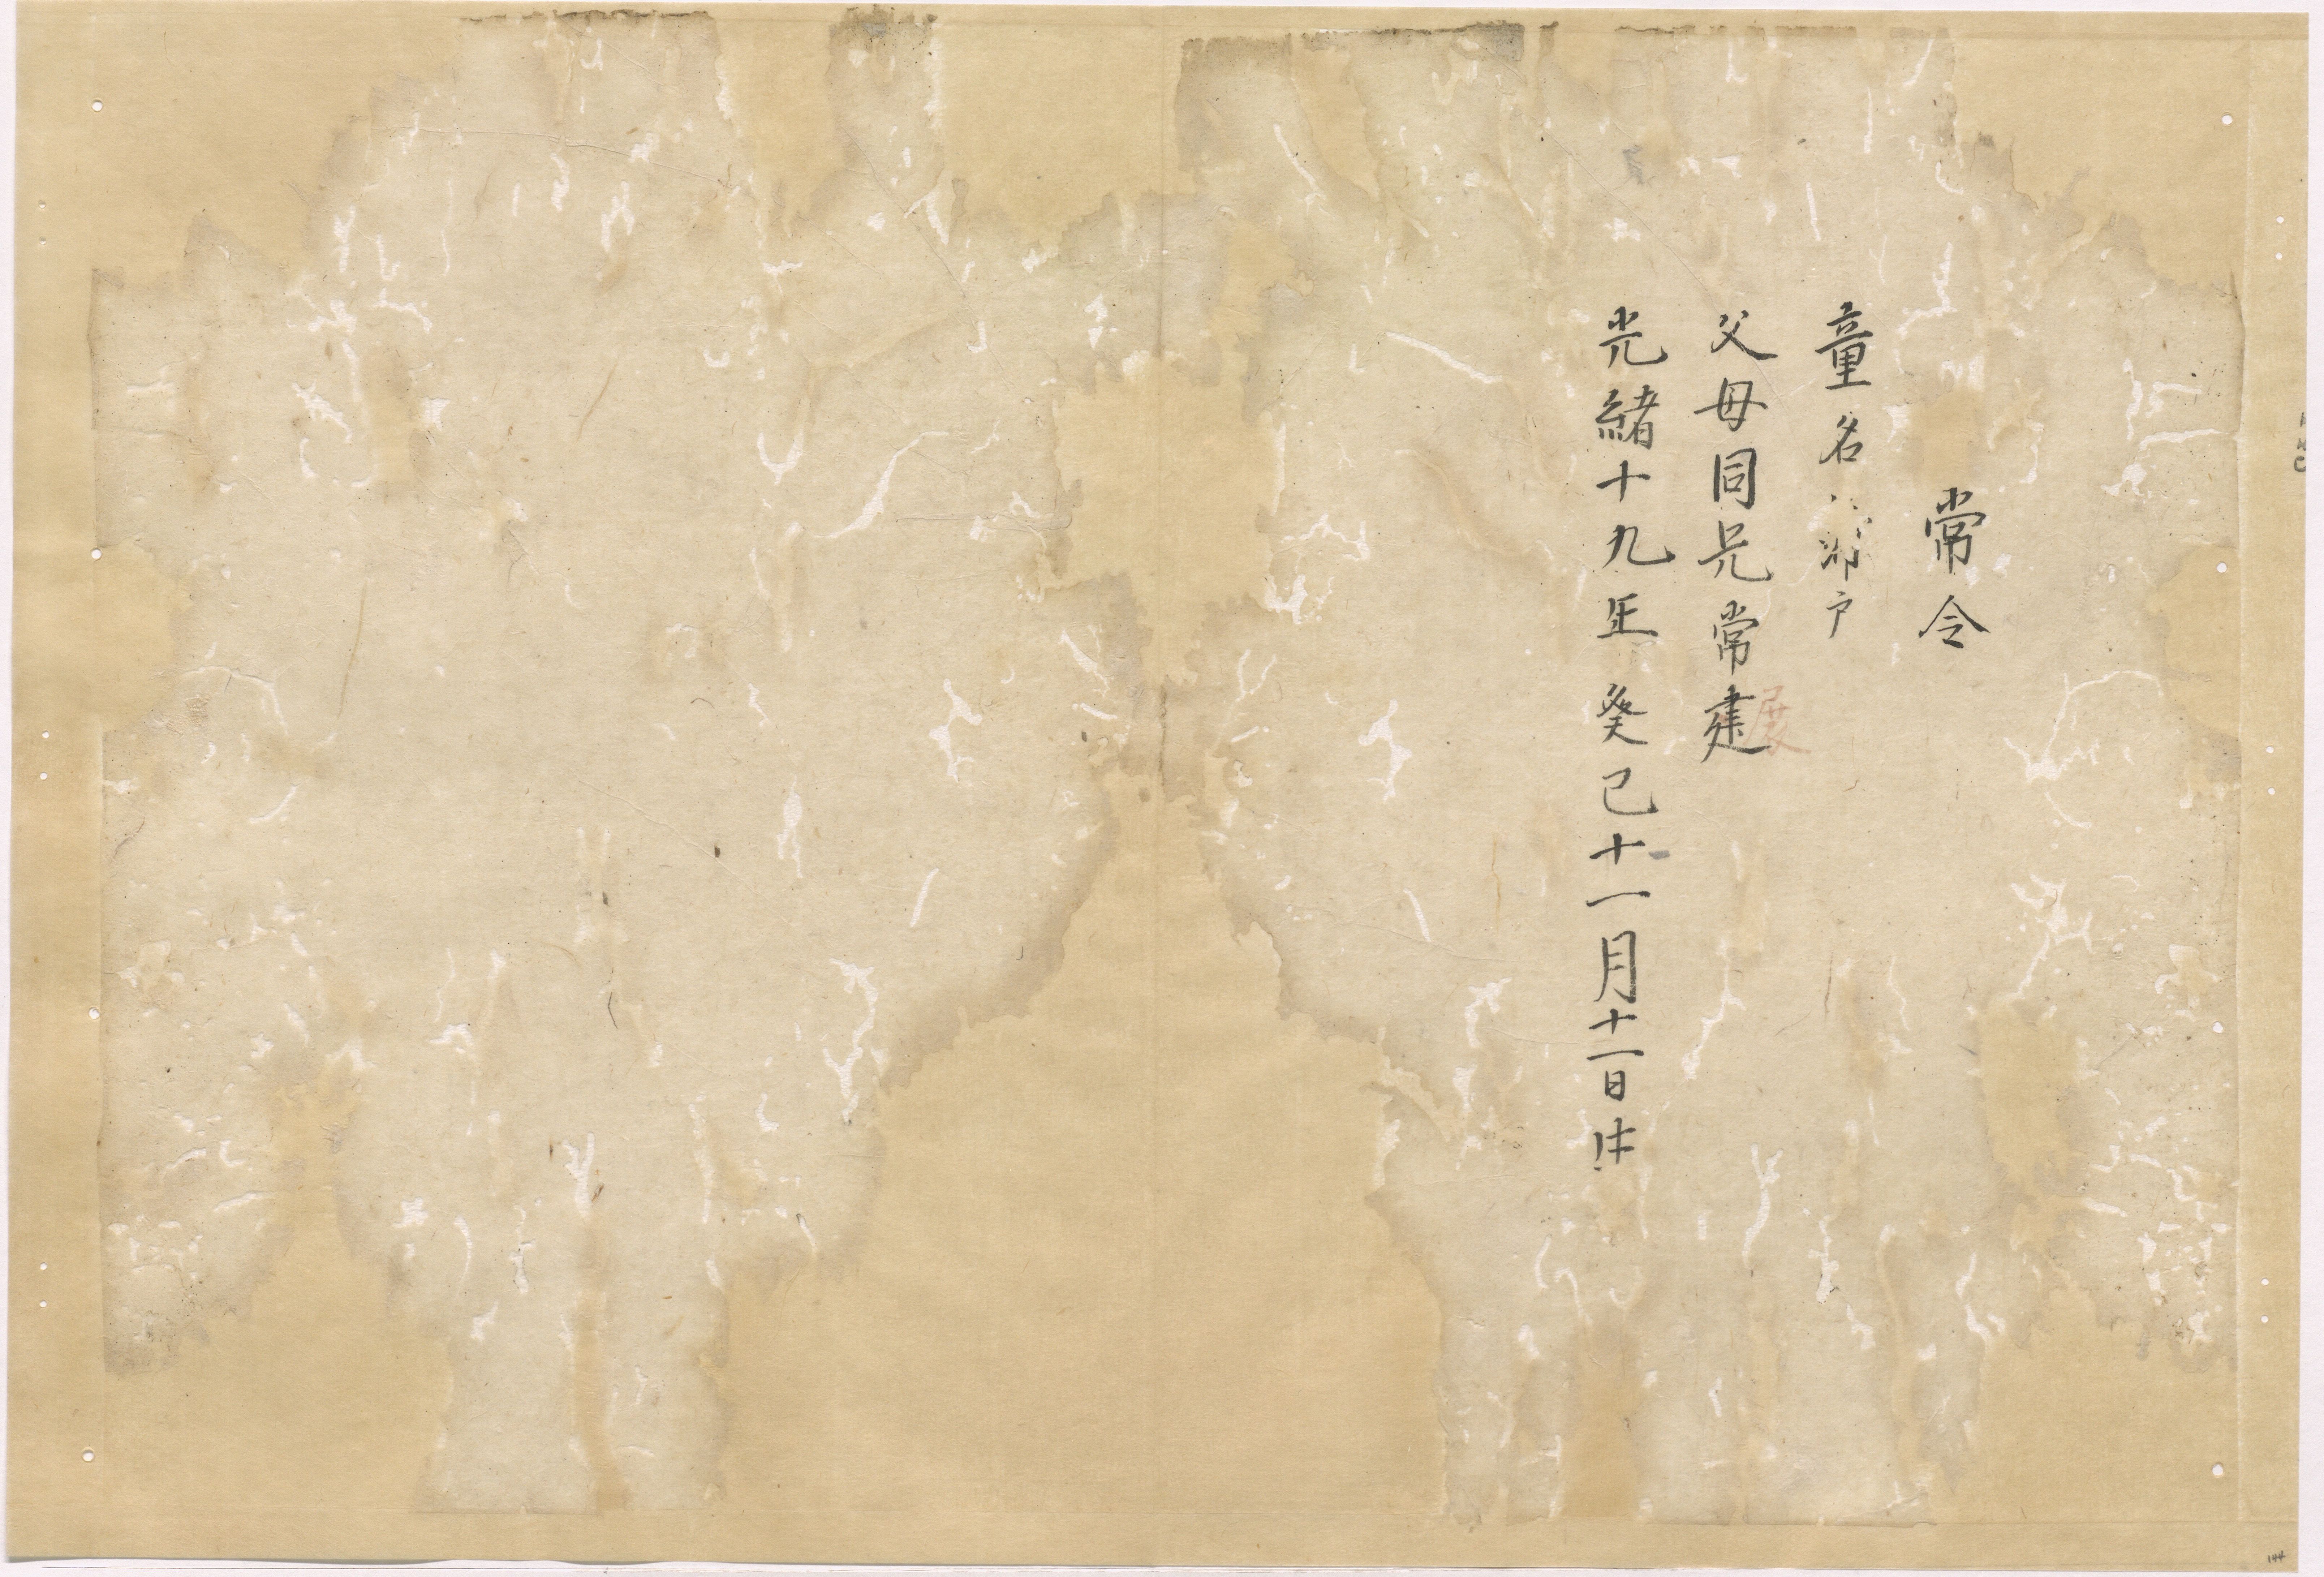 常令
童名
父母同兄常建
光緒十九年癸巳十一月十一日生
144